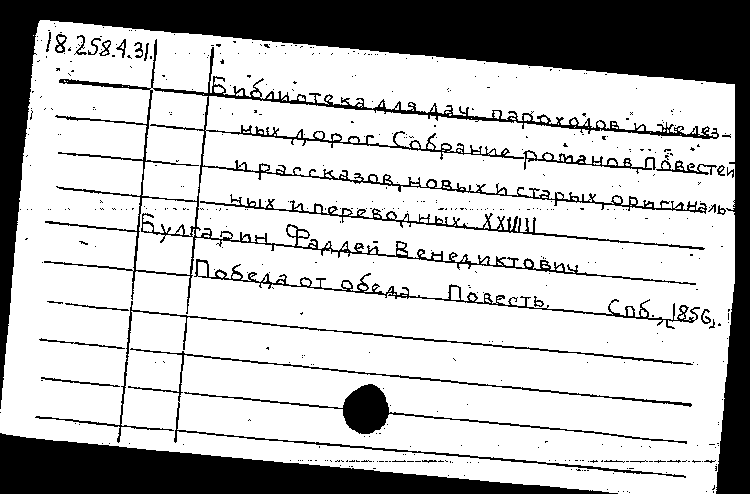 18.258.4.31.
Библиотека для дач, пароходов и желез-
ных дорог. Собрание романов, повестей
и рассказов, новых и старых, оригиналь-
ных и переводных.
Булгарин, Фаддей Венедиктович
Победа от обеда. Повесть. Спб., [1856].